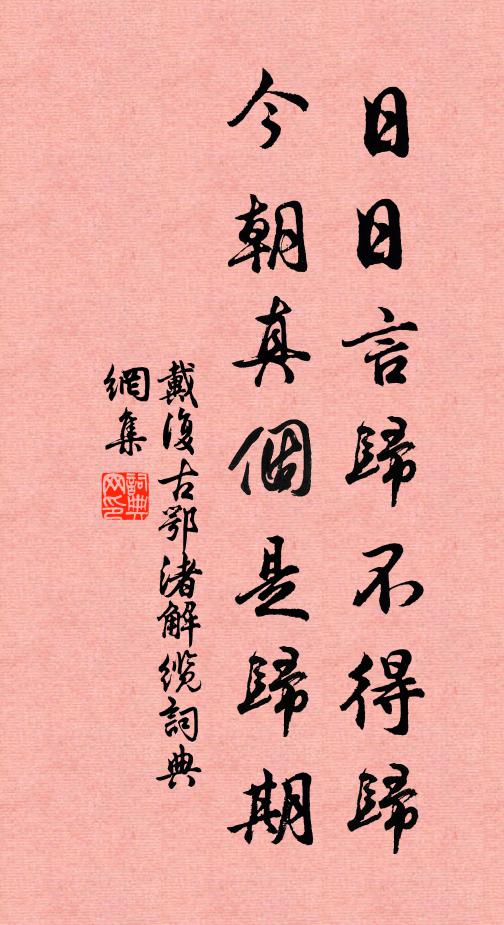 日日言歸不得歸
今朝真個是歸期
戴復古鄂渚解纜詞典
網集
詞典網印